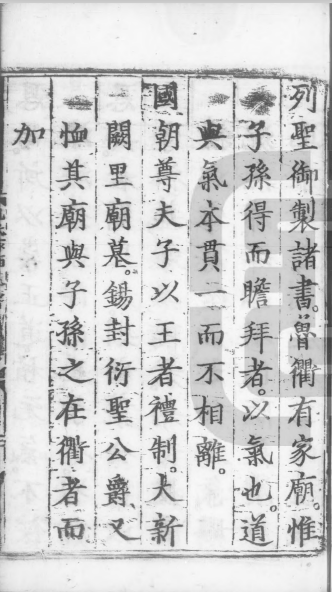 列聖御製諸書。魯衢有家廟。惟
子孫得而瞻拜者。以氣也。道
與氣本貫一而不相離。
國朝尊夫子以王者禮制。大新
闕里廟墓。錫封衍聖公爵、又
恤其廟與子孫之在衢者而
加